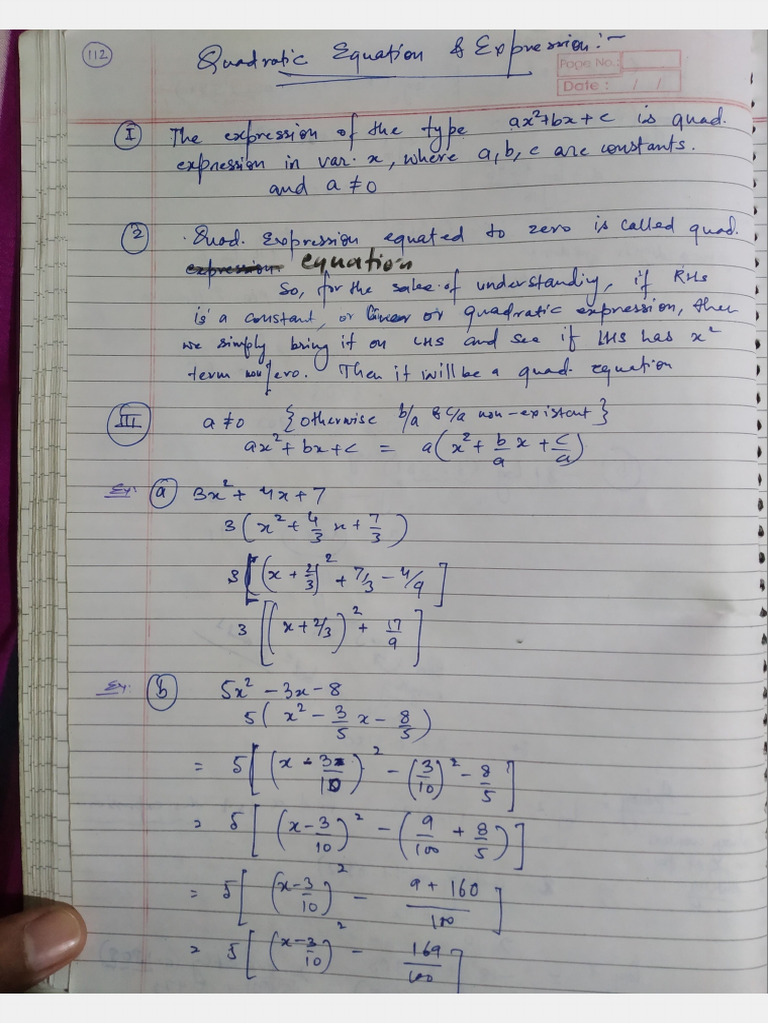 112
Quadratic Equation & Expression:-
Page No.:
Date : / /
I The expression of the type ax²+bx+c is quad.
expression in var. x, where a, b, c are constants.
and a ≠ 0
2 Quad. Expression equated to zero is called quad.
expression equation
So, for the sake of understanding, if RHS
is a constant, or linear or quadratic expression, then
we simply bring it on LHS and see if LHS has x²
term non zero. Then it will be a quad. equation
III a≠0 {otherwise b/a & c/a non-existant}
ax²+bx+c = a(x²+ b/a x + c/a)
Ex: a 3x²+ 4x+7
3(x²+ 4/3 x+ 7/3)
3[(x+2/3)² + 7/3 - 4/9]
3[(x+2/3)² + 17/9]
Ex: b 5x² - 3x - 8
5(x² - 3/5 x - 8/5)
= 5[(x - 3/10)² - (3/10)² - 8/5]
= 5[(x-3/10)² - (9/100 + 8/5)]
= 5[(x-3/10)² - 9+160/100]
= 5[(x-3/10)² - 169/100]